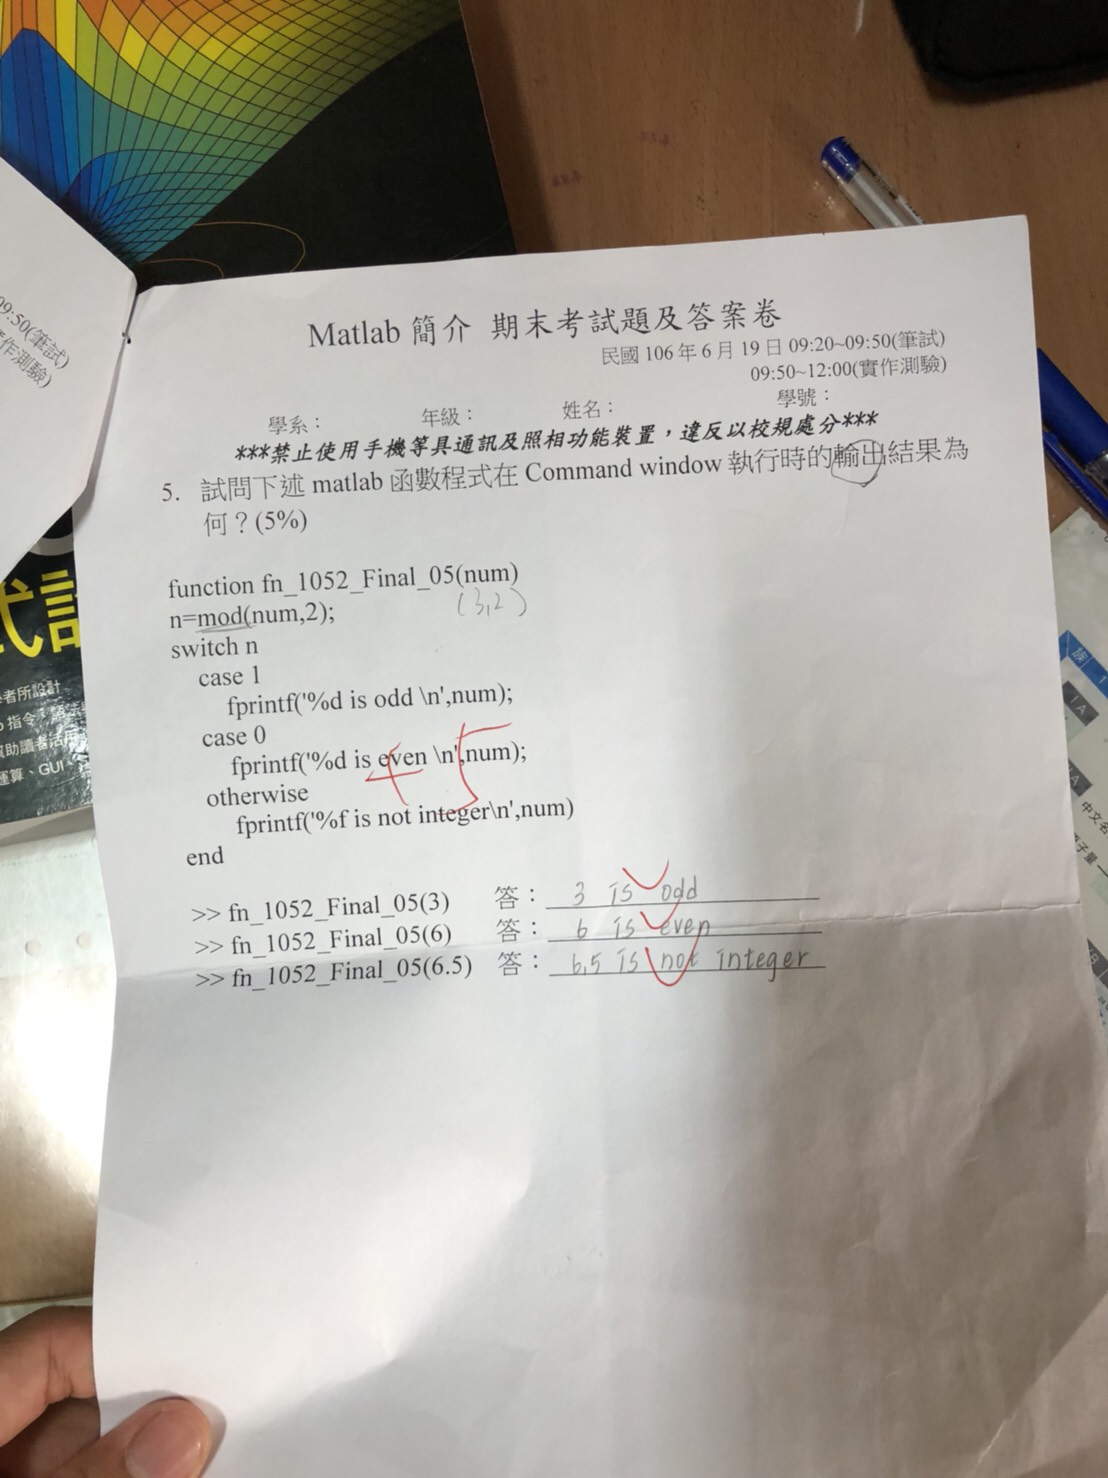 09:50(筆試)
作測驗)
Matlab 簡介 期末考試題及答案卷
民國 106 年 6 月 19 日 09:20~09:50(筆試)
09:50~12:00(實作測驗)
學系： 年級： 姓名： 學號：
***禁止使用手機等具通訊及照相功能裝置，違反以校規處分***
5. 試問下述 matlab 函數程式在 Command window 執行時的輸出結果為
何？(5%)
function fn_1052_Final_05(num)
(3,2)
n=mod(num,2);
switch n
case 1
fprintf('%d is odd \n',num);
case 0
fprintf('%d is even \n',num);
otherwise
fprintf('%f is not integer\n',num)
end
+5
>> fn_1052_Final_05(3) 答： 3 is odd
>> fn_1052_Final_05(6) 答： 6 is even
>> fn_1052_Final_05(6.5) 答： 6.5 is not integer
式
者所設計
指令
幫助讀者活用
運算、GUI
族
1
1A
中文名